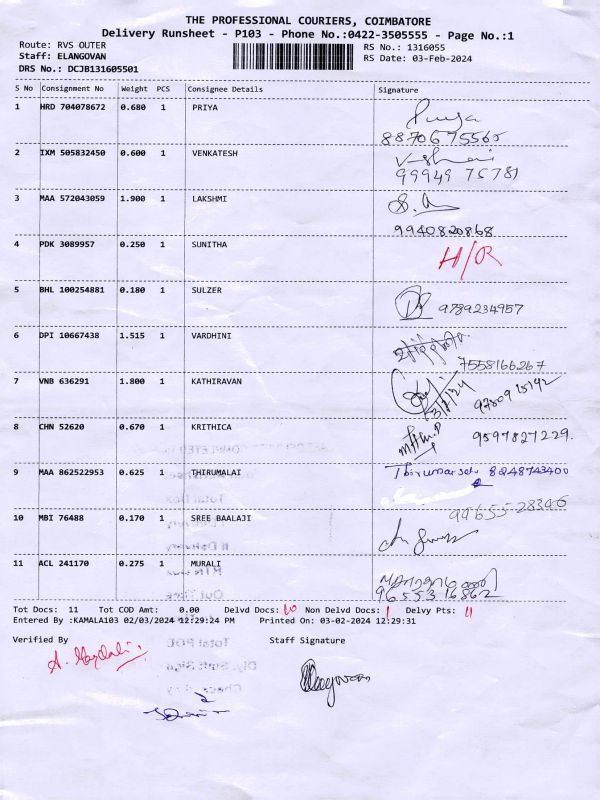 THE PROFESSIONAL COURIERS, COIMBATORE
Delivery Runsheet - P103 - Phone No.:0422-3505555 - Page No.:1
Route: RVS OUTER RS No.: 1316055
Staff: ELANGOVAN RS Date: 03-Feb-2024
DRS No.: DCJB131605501
S No Consignment No Weight PCS Consignee Details Signature
1 HRD 704078672 0.680 1 PRIYA Priya
8870675565
2 IXM 505832450 0.600 1 VENKATESH
99949 75781
3 MAA 572043059 1.900 1 LAKSHMI
9940820868
4 PDK 3089957 0.250 1 SUNITHA H/R
5 BHL 100254881 0.180 1 SULZER 9789234957
6 DPI 10667438 1.515 1 VARDHINI
7558166267
7 VNB 636291 1.800 1 KATHIRAVAN
3/2/24
8 CHN 52620 0.670 1 KRITHICA 9597827229.
9 MAA 862522953 0.625 1 THIRUMALAI 8248743400
10 MBI 76488 0.170 1 SREE BAALAJI 99655 28346
11 ACL 241170 0.275 1 MURALI
9655316862
Tot Docs: 11 Tot COD Amt: 0.00 Delvd Docs: 10 Non Delvd Docs: 1 Delvy Pts: 11
Entered By :KAMALA103 02/03/2024 12:29:24 PM Printed On: 03-02-2024 12:29:31
Verified By Staff Signature
Elangovan